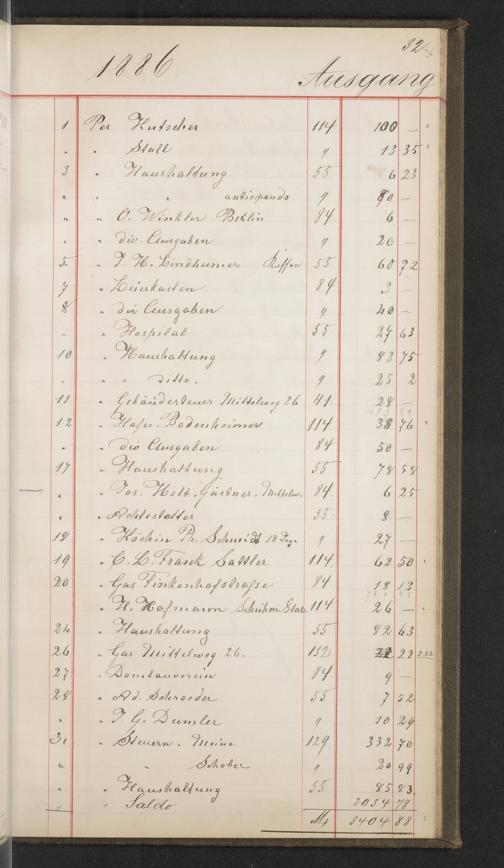 32
1886 Ausgang
1 Per Kutscher 114 100 —
" " Stall " 13 35
3 " Haushaltung 55 6 23
" " " anticipando " —
" " O. Winkler Berlin 84 6 —
" " div. Ausgaben " 20 —
5 " J. H. Lindheimer 55 60 72
7 " Leierkasten 84 3
8 " div Ausgaben " 40 —
" Hospital 55 27 63
10 " Haushaltung " 83 75
" " " ditto. " 25 2
11 " Gebäudesteuer Mittelweg 26 41 28 —
12 " Hafer. Badenheimer 114 38 76
" " div Ausgaben 84 50 —
17 " Haushaltung 55 78 58
" " Jos. Hett. Gärtner. Mittelw. 84 6 25
" " 55 8 —
18 " Köchin Pr. Schmidt 18 Tage " 27 —
19 " C. L. Frank Sattler 114 62 50
20 " Gas Finkenhofstrasse 84 18 13
" H. Hofmann 114 26 —
24 " Haushaltung 55 82 63
26 " Gas Mittelweg 26. 132 29
27 " Dombauverein 84 9 —
28 " Ad. Schroeder 55 7 52
" " J. G. Dumler " 10 29
31 " Steuern. Meine 129 332 70
" " Schober " 20 99
" " Haushaltung 55 85 83
" " Saldo 2034 78
Mk 3404 88